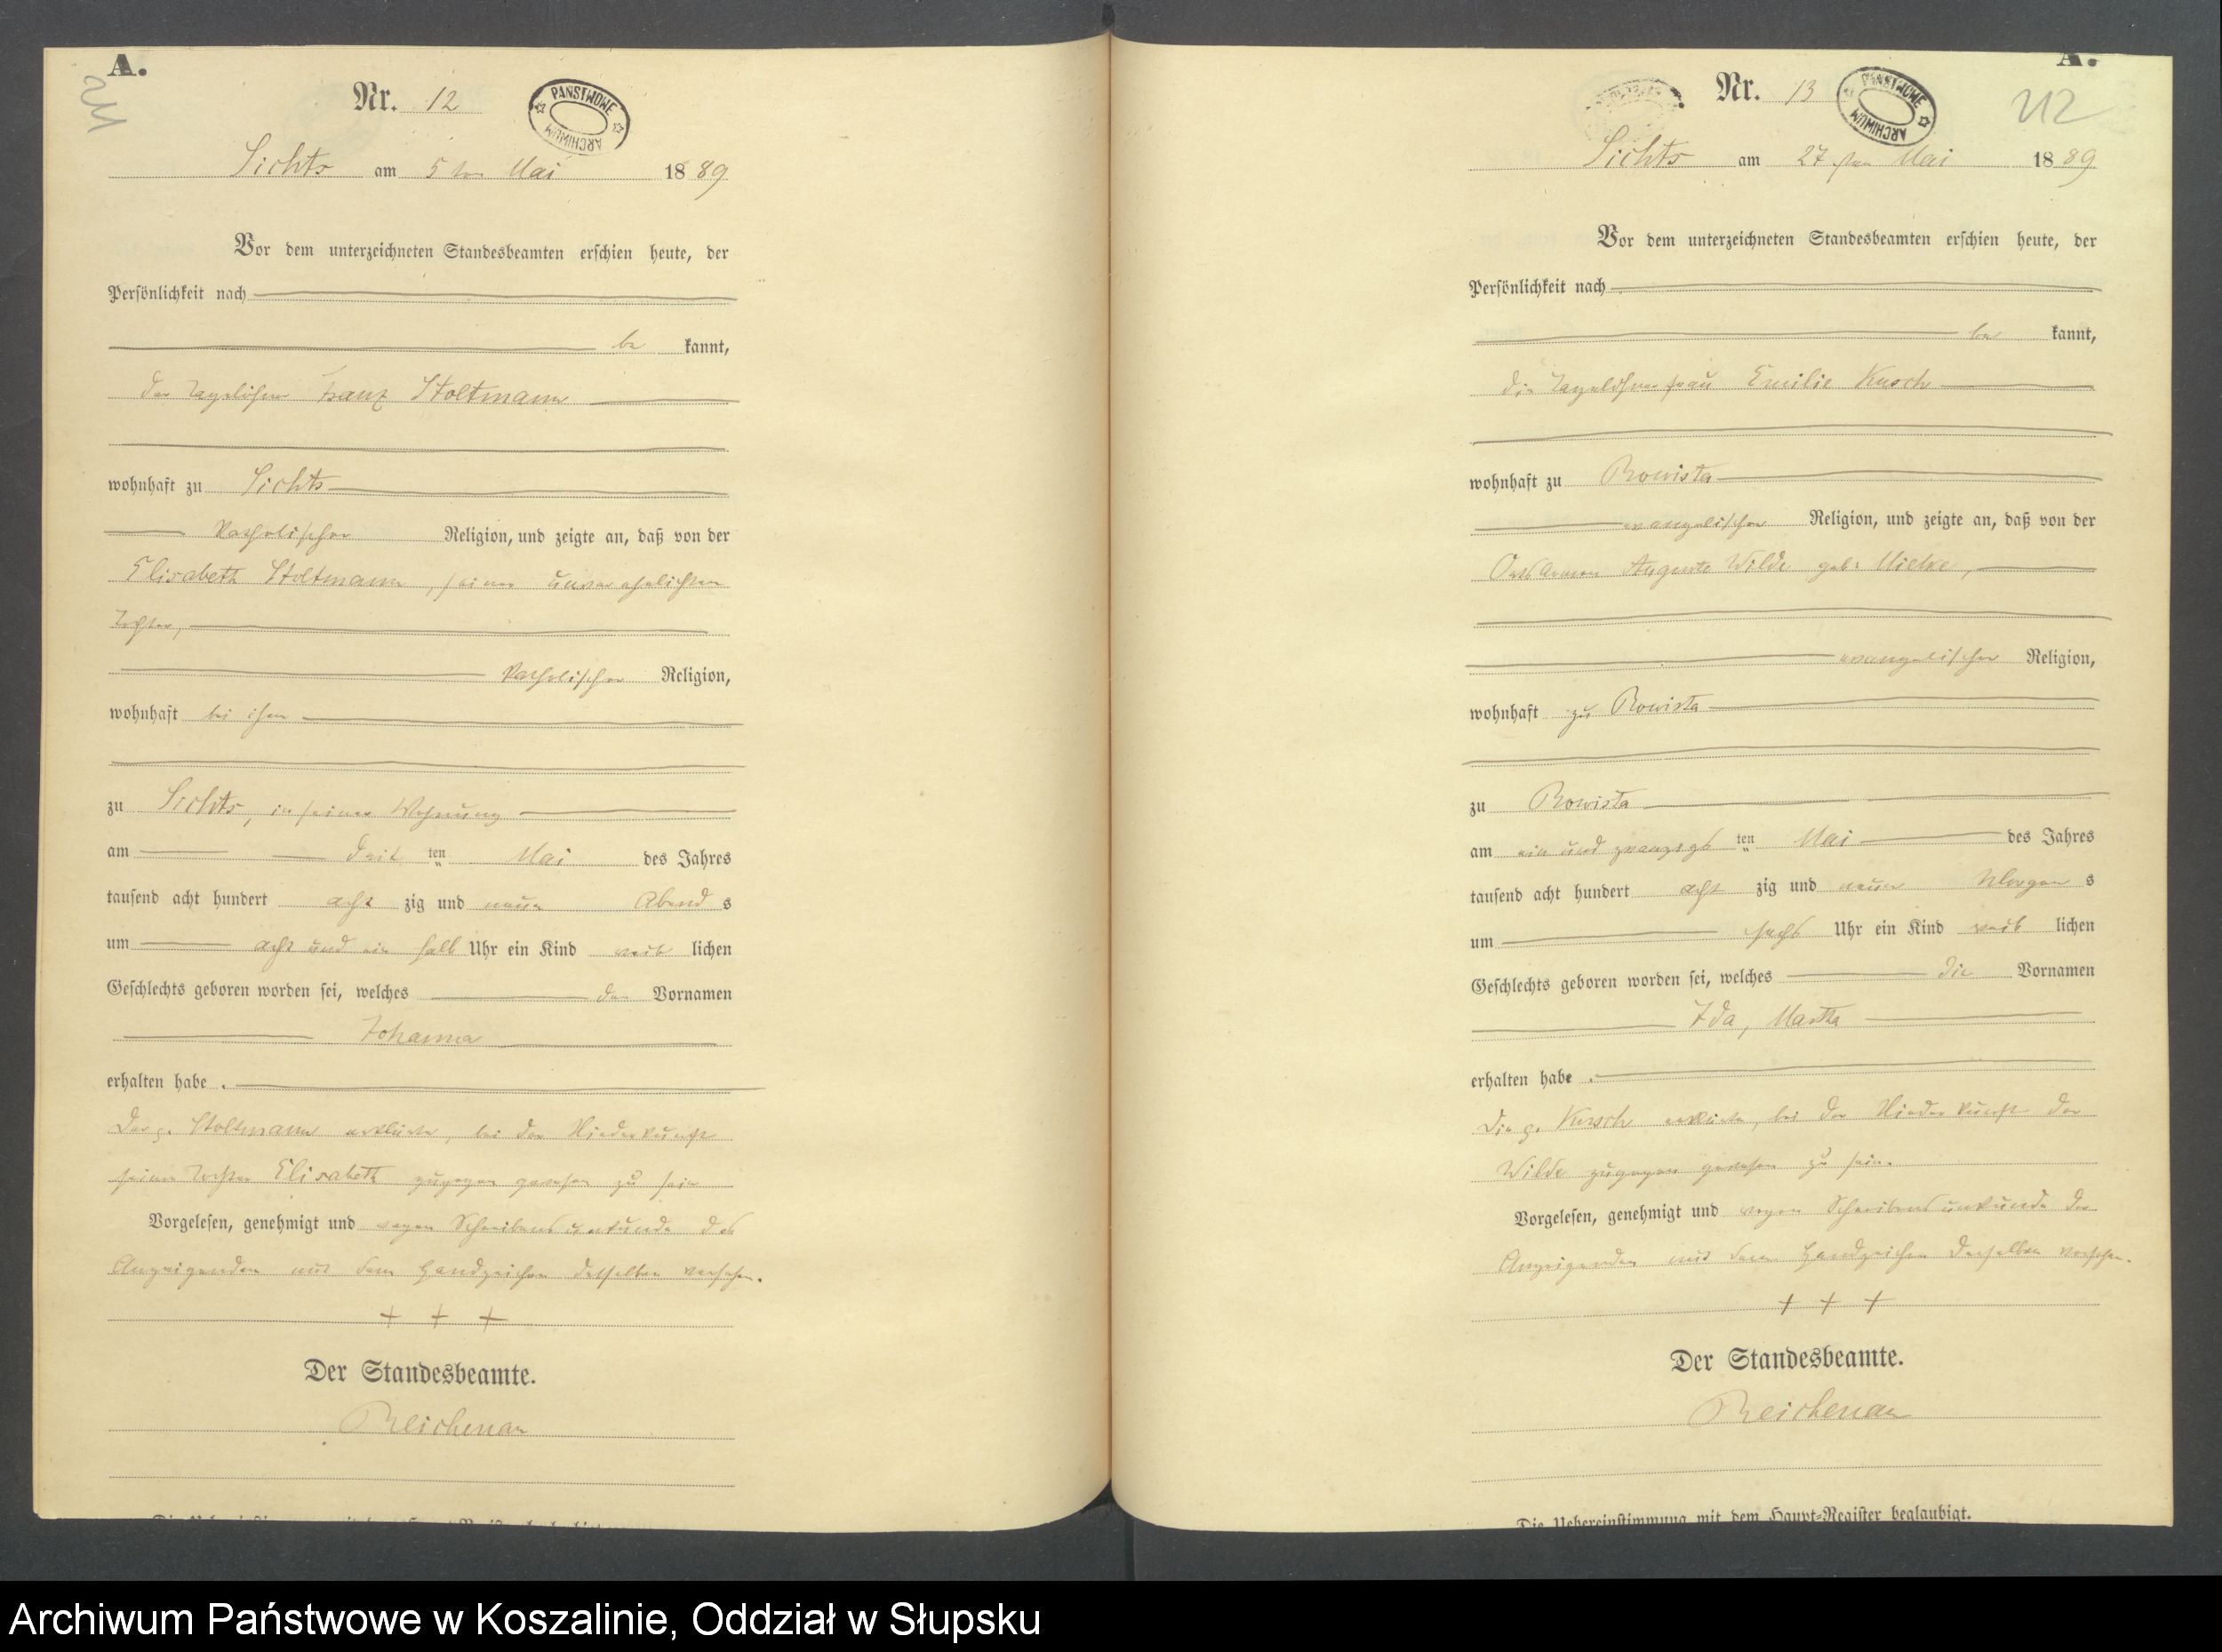 A.
211
Nr. 12
PAŃSTWOWE
ARCHIWUM
Sichts am 5ten Mai 1889
Vor dem unterzeichneten Standesbeamten erschien heute, der
Persönlichkeit nach
be kannt,
der Tagelöhner Franz Stoltmann
wohnhaft zu Sichts
katholischer Religion, und zeigte an, daß von der
Elisabeth Stoltmann, seiner unverehelichten
Tochter,
katholischer Religion,
wohnhaft bei ihm
zu Sichts, in seiner Wohnung
am dritten Mai des Jahres
tausend acht hundert acht zig und neun Abend s
um acht und ein halb Uhr ein Kind weib lichen
Geschlechts geboren worden sei, welches den Vornamen
Johanna
erhalten habe.
Der p. Stoltmann erklärte, bei der Niederkunft
seiner Tochter Elisabeth zugegen gewesen zu sein
Vorgelesen, genehmigt und wegen Schreibensunkunde des
Anzeigenden mit dem Handzeichen desselben versehen.
+ + +
Der Standesbeamte.
Reichenau
A.
Nr. 13
PAŃSTWOWE
ARCHIWUM
212
Sichts am 27sten Mai 1889
Vor dem unterzeichneten Standesbeamten erschien heute, der
Persönlichkeit nach
be kannt,
die Tagelöhnerfrau Emilie Kusch
wohnhaft zu Rowista
evangelischer Religion, und zeigte an, daß von der
Ortsarmen Auguste Wilde geb. Mielke,
evangelischer Religion,
wohnhaft zu Rowista
zu Rowista
am ein und zwanzigsten Mai des Jahres
tausend acht hundert acht zig und neun Morgen s
um sechs Uhr ein Kind weib lichen
Geschlechts geboren worden sei, welches die Vornamen
Ida, Martha
erhalten habe.
Die p. Kusch erklärte, bei der Niederkunft der
Wilde zugegen gewesen zu sein.
Vorgelesen, genehmigt und wegen Schreibensunkunde der
Anzeigenden mit dem Handzeichen derselben versehen.
+ + +
Der Standesbeamte.
Reichenau
Die Uebereinstimmung mit dem Haupt-Register beglaubigt.
Archiwum Państwowe w Koszalinie, Oddział w Słupsku